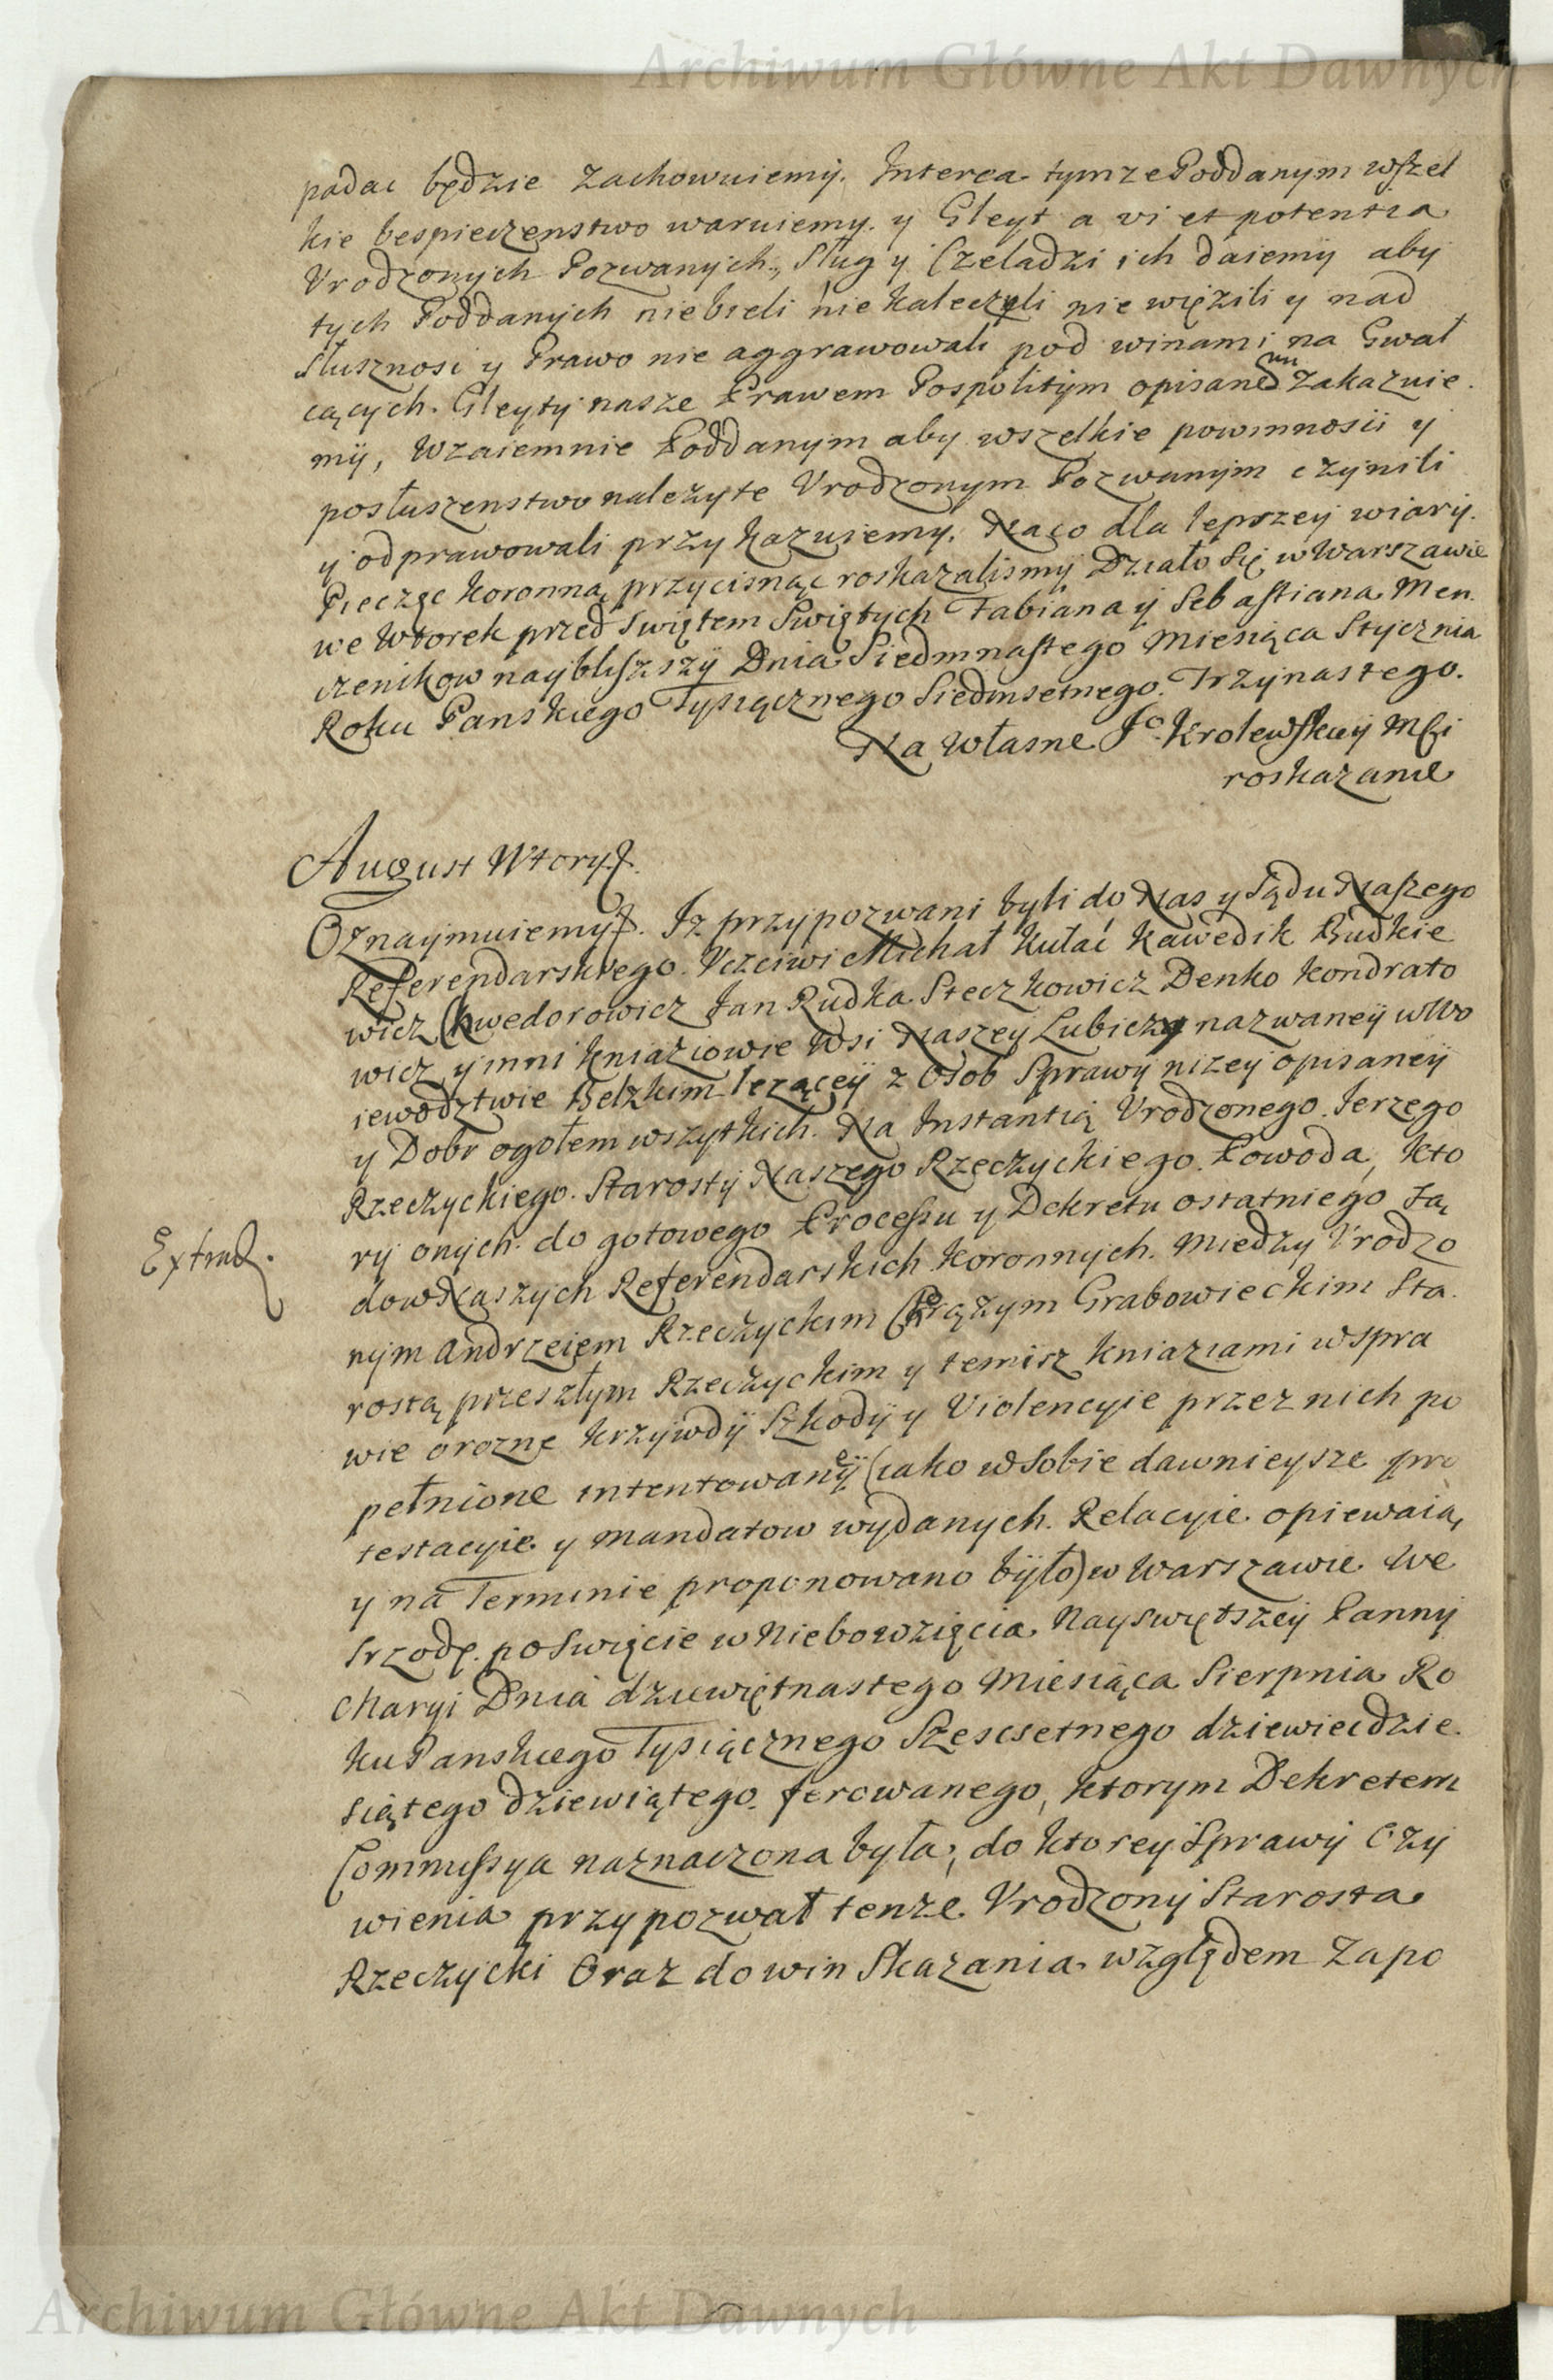 Archiwum Główne Akt Dawnych
padac będzie zachowuiemy. Interea tymze Poddanym wszel
kie bespieczenstwo waruiemy. y Gleyt a vi et potentia
Vrodzonych Pozwanych, Sług y Czeladzi ich daiemy aby
tych Poddanych niebieli nie kaleczyli nie więzili y nad
Słusznosc y Prawo nie aggrawowali pod winami na Gwał
cących. Gleyty nasze Prawem Pospolitym opisanemi zakazuie
my, Wzaiemnie Poddanym aby wszelkie powinnosci y
posłuszenstwo nalezyte Vrodzonym Pozwanym czynili
y odprawowali przykazuiemy. Na co dla lepszey wiary.
Pieczęc Koronną przycisnąc roskazalismy Działo się w Warszawie
we Wtorek przed Swiętem Swiętych Fabiana y Sebastiana Men
czenikow nayblizszy Dnia Siedmnastego Miesiąca Stycznia
Roku Panskiego Tysiącznego Siedmsetnego. Trzynastego.
Na Własne Jo Krolewskiey Mści
roskazanie
August Wtory
Oznaymuiemy. Iz przypozwani byli do Nas y Sądu Naszego
Referendarskiego. Vczciwi Michał Kułać Kawedik Budkie
wicz Chwedorowicz Jan Rudka Steczkowicz Denko Kondrato
wicz y inni Kniaziowie Wsi Naszey Lubicza nazwaney w Wo
iewodztwie Belzkim lezącey z Osob Sprawy nizey opisaney
y Dobr ogołem wszytkich. Na Instantią Vrodzonego Jerzego
Rzeczyckiego. Starosty Naszego Rzeczyckiego. Powoda, kto
ry onych do gotowego Processu y Dekretu ostatniego Są
Extrad.
dow Naszych Referendarskich Koronnych. Miedzy Vrodzo
nym Andrzeiem Rzeczyckim Chorązym Grabowieckim Sta
rostą przeszłym Rzeczyckim y temisz Kniaziami w spra
wie orozne krzywdy Szkody y Violencyie przez nich po
pełnione intentowaney (iako w sobie dawnieysze pro
testacyie y mandatow wydanych. Relacyie opiewaią,
y na Terminie proponowano było) w Warszawie We
Srzodę po Swięcie w Niebowzięcia Nayswiętszey Panny
Maryi Dnia dziewiętnastego Miesiąca Sierpnia Ro
ku Panskiego Tysiącznego Szescsetnego dziewiecdzie
siątego dziewiątego. ferowanego, ktorym Dekretem
Commissya naznaczona była, do ktorey Sprawy Ozy
wienia przypozwał tenze Vrodzony Starosta
Rzeczycki Oraz do win Skazania względem Zapo
Archiwum Główne Akt Dawnych